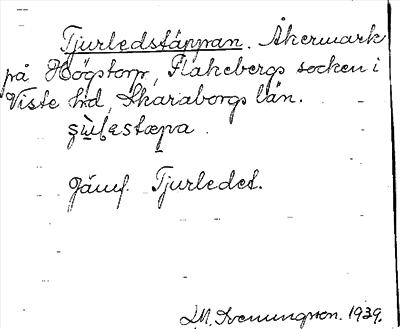 Tjurledstäppan. Åkermark
på Högstorp, Flakebergs socken i
Viste hd, Skaraborgs län.
Jämf. Tjurledet.
M. Svenungsson. 1939.